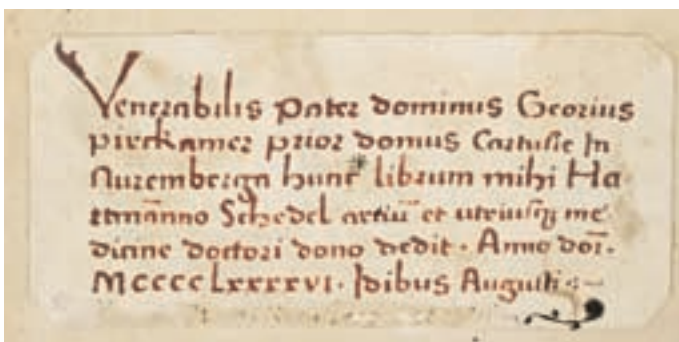 Venerabilis pater dominus Georius
pirckamer prior domus Cartusie In
Nuremberga hunc librum mihi Ha
rtmānno Schedel artiū et utriusqꝫ me
dicine doctori dono dedit · Anno doī·
MCCCCLXXXXVI · Idibus Augusti :~